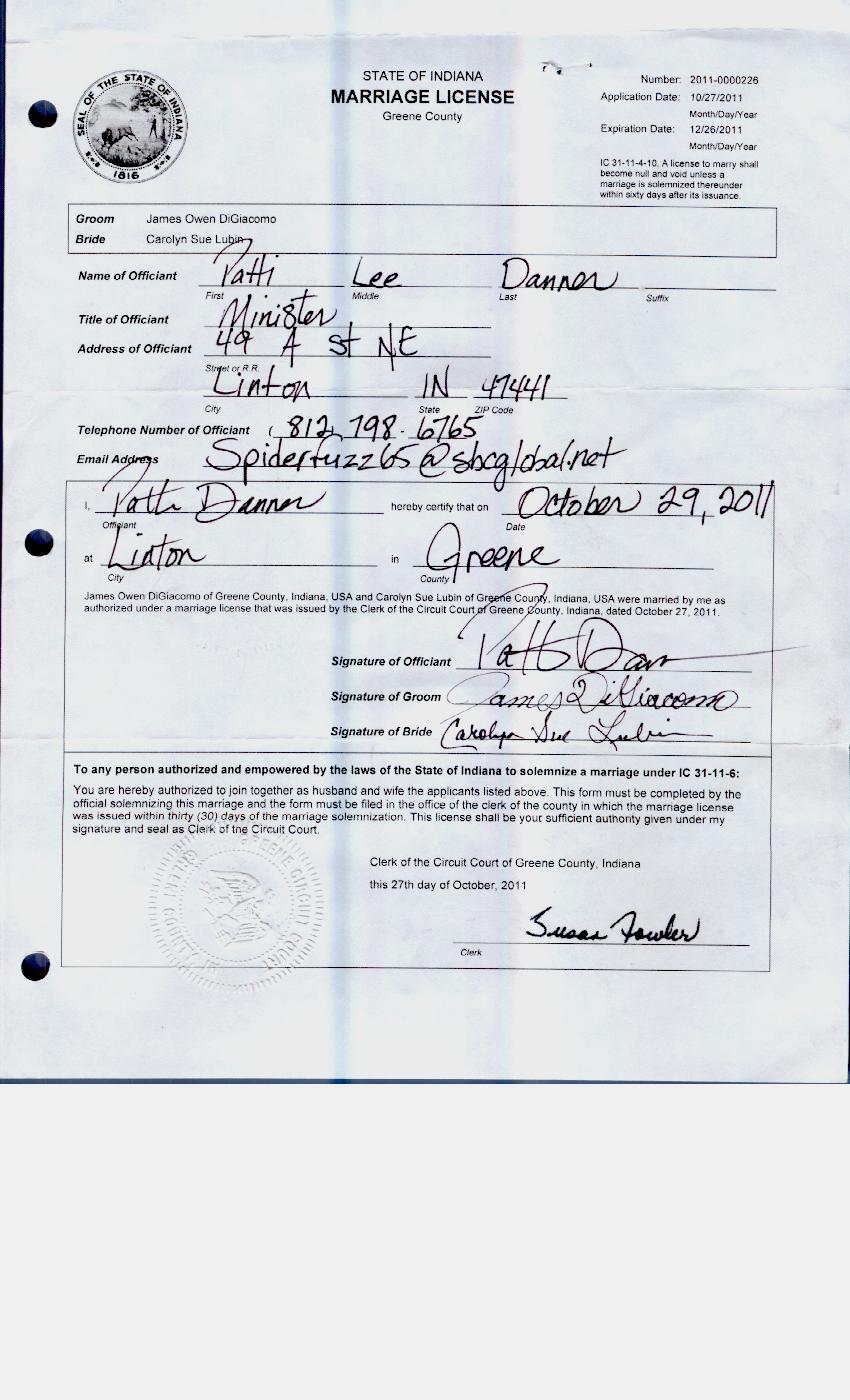 STATE OF INDIANA
MARRIAGE LICENSE
Greene County
SEAL OF THE STATE OF INDIANA
1816
Number: 2011-0000226
Application Date: 10/27/2011
Month/Day/Year
Expiration Date: 12/26/2011
Month/Day/Year
IC 31-11-4-10, A license to marry shall
become null and void unless a
marriage is solemnized thereunder
within sixty days after its issuance.
Groom James Owen DiGiacomo
Bride Carolyn Sue Lubin
Name of Officiant Patti Lee Danner
First Middle Last Suffix
Title of Officiant Minister
Address of Officiant 49 A St NE
Street or R.R.
Linton IN 47441
City State ZIP Code
Telephone Number of Officiant (812) 798-6765
Email Address Spiderfuzz65@sbcglobal.net
I, Patti Danner hereby certify that on October 29, 2011
Officiant Date
at Linton in Greene
City County
James Owen DiGiacomo of Greene County, Indiana, USA and Carolyn Sue Lubin of Greene County, Indiana, USA were married by me as
authorized under a marriage license that was issued by the Clerk of the Circuit Court of Greene County, Indiana, dated October 27, 2011.
Signature of Officiant Patti Dann
Signature of Groom James DiGiacomo
Signature of Bride Carolyn Sue Lubin
To any person authorized and empowered by the laws of the State of Indiana to solemnize a marriage under IC 31-11-6:
You are hereby authorized to join together as husband and wife the applicants listed above. This form must be completed by the
official solemnizing this marriage and the form must be filed in the office of the clerk of the county in which the marriage license
was issued within thirty (30) days of the marriage solemnization. This license shall be your sufficient authority given under my
signature and seal as Clerk of the Circuit Court.
Clerk of the Circuit Court of Greene County, Indiana
this 27th day of October, 2011
Susan Fowler
Clerk
GREENE CIRCUIT COURT
COUNTY